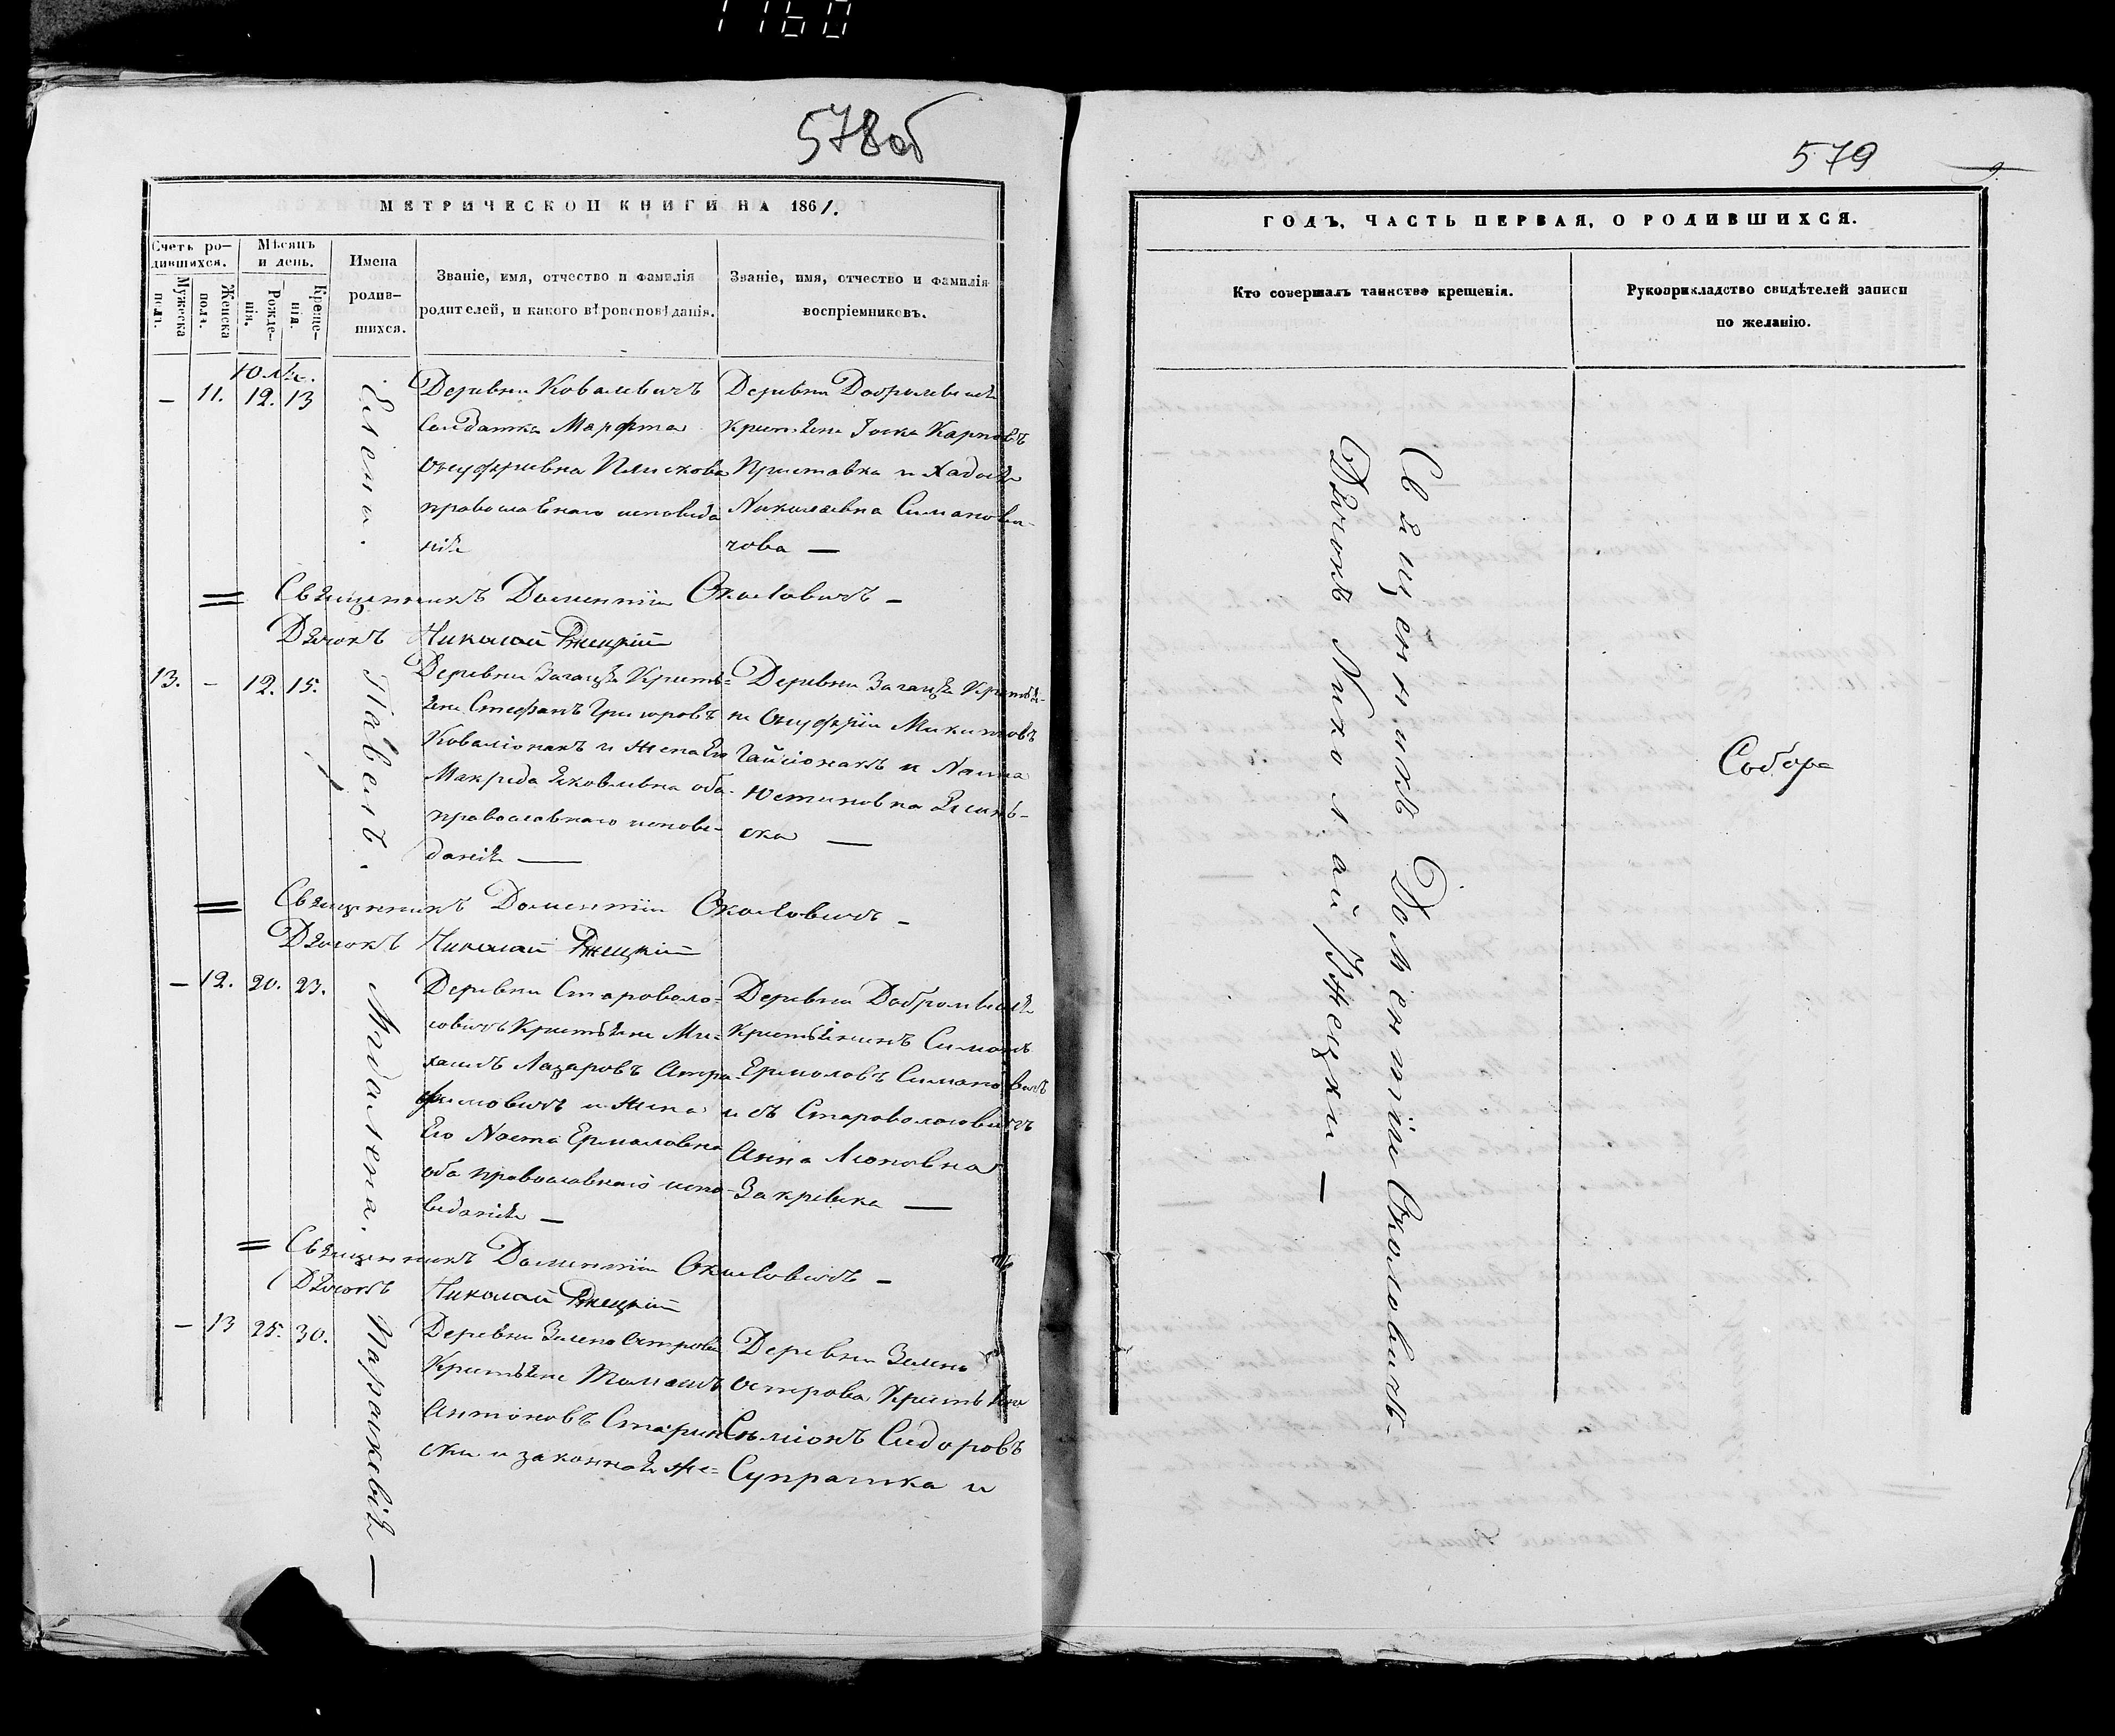 1160
578об
МЕТРИЧЕСКОЙ КНИГИ НА 1861.
Счетъ ро-
дившихся.
Мужеска
пола.
Женска
пола.
Мѣсяцъ
и день.
Рожде-
нія.
Креще-
нія.
Имена
родив-
шихся.
Званіе, имя, отчество и фамилія
родителей, и какого вѣроисповѣданія.
Званіе, имя, отчество и фамилія
воспріемниковъ.
Юля.
— 11. 12. 13
Елена.
Деревни Ковалевичъ
Солдатка Марфта
Онуфріевна
православнаго исповѣда
нія
Деревни
Іоска Карповъ
Приставка и Хадося
Николаевна Симанови-
чова —
= Священникъ Доментій Околовичъ —
Дьячокъ Николай Ржецкій
13. — 12. 15.
Павелъ.
Деревни Загаця Кресть=
яне Стефанъ Григоровъ
Ковалiонакъ и Жена Его
Макрида Яковлевна оба
православнаго испове-
данія —
Деревни Загаця Крестья-
не Онуфрій Микитовъ
и
Юстиновна
ска —
= Священникъ Доментій Околовичъ —
Дьячокъ Николай Ржецкій
— 12. 20. 23.
Магдалена.
Деревни Староволо=
совичъ Крестьяне Ми=
хаилъ Лазаровъ Атра-
фимовичъ и жена
Его Наста Ермоловна
оба православнаго испо-
веданія —
Деревни
Крестьянинъ Симонъ
Ермоловъ Симановичъ
и съ Староволосовичъ
Анна Леоновна
Закревска —
= Священникъ Доментій Околовичъ —
Дьячокъ Николай Ржецкій
— 13 25. 30.
Параскевія —
Деревни Зелено Острова
Крестьяне Томашъ
Антоновъ Старин
ски и законная же=
Деревни Зелено
Острова Крестьяне
Сымiонъ Сидоровъ
Супрашка и
579
9.
ГОДЪ, ЧАСТЬ ПЕРВАЯ, О РОДИВШИХСЯ.
Кто совершалъ таинство крещенія.
Рукоприкладство свидѣтелей записи
по желанію.
Священникъ Доментій Околовичъ-
Дьячокъ Николай Ржецки —
Собора